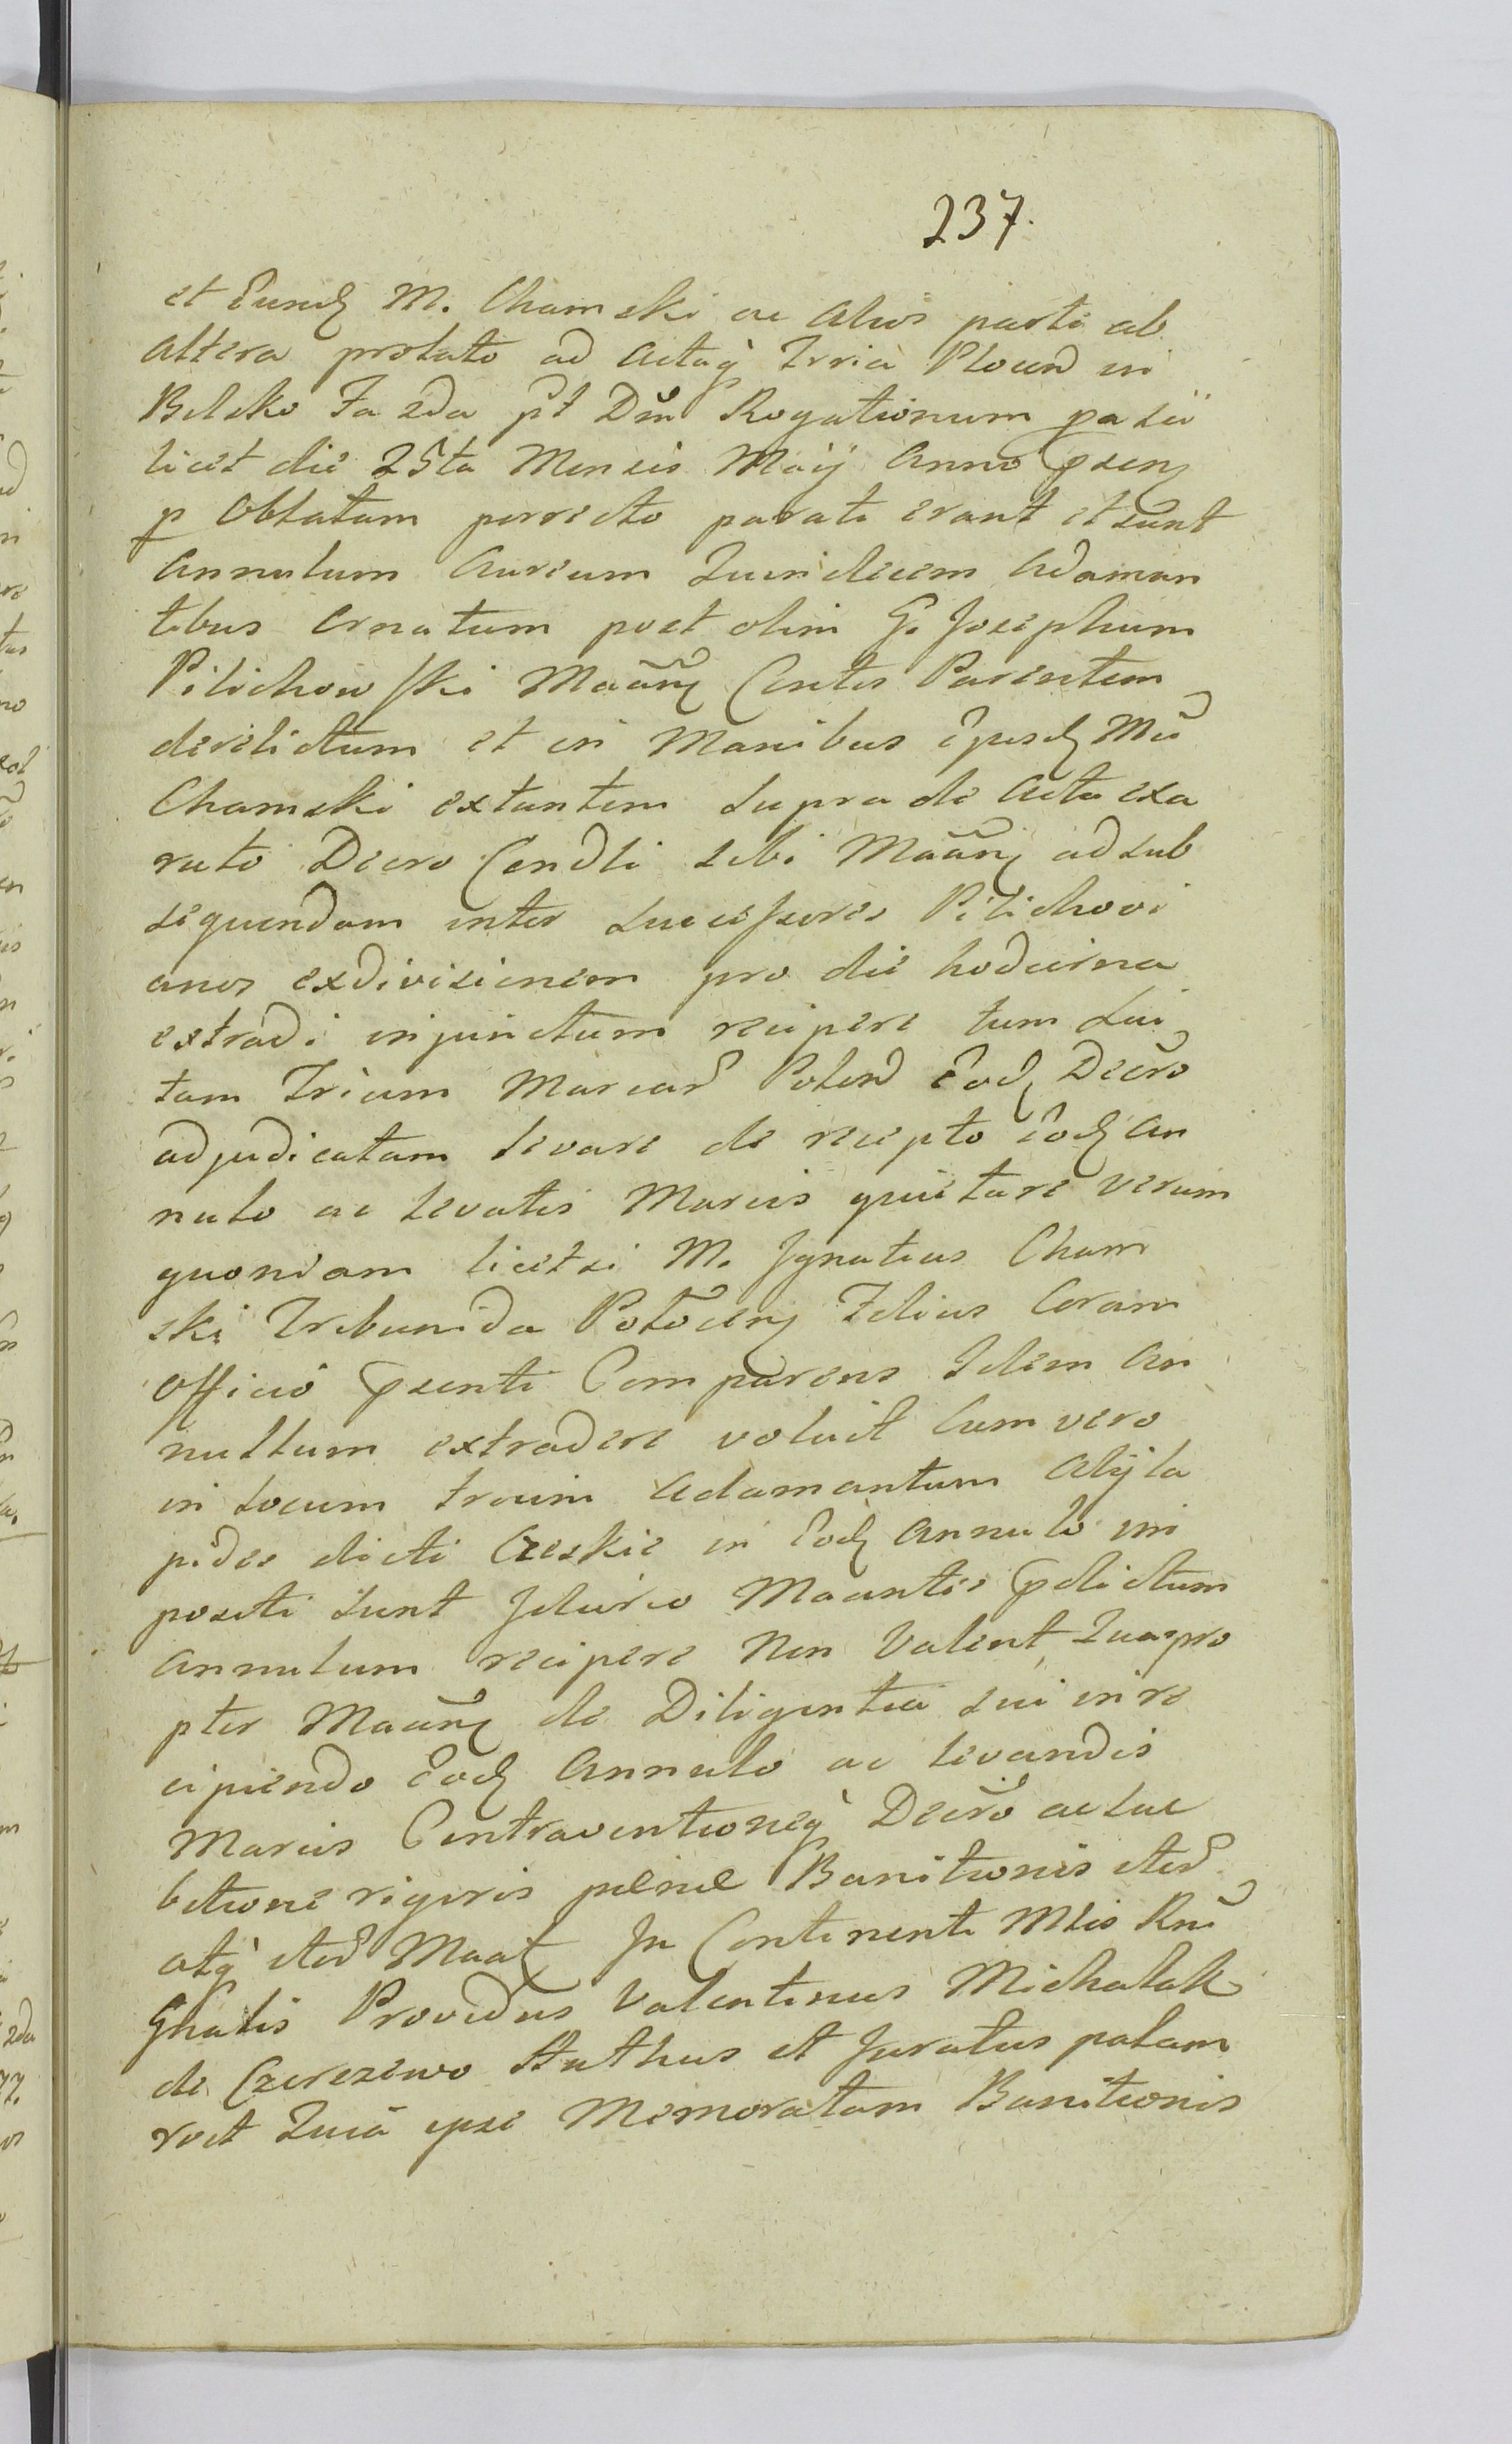 237.
et Eund M. Chamski ac alios parti ab
altera prolato ad Actaq Trria Plocen in
Bielsko Fa 2da pt Dm Rogationum pa sci
licet die 25ta Mensis Maij Anno psen
p Oblatam porrecto parati erant et sunt
Annulum Aureum Quindecem Adaman
tibus ornatum post olim G. Josephum
Pilichowski Maan Centis Parentem
derelictum et in Manibus Ejusd Mci
Chamski extantem supra de acta exa
rato Decro Condli sibi Maan ad sub
sequendam inter sucessores Pilichovi
anos exdivisionem pro die hodierna
extradi injunctum recipere tum Lui
tam Trium Marcar Polon Eod Decro
adjudicatam levare de recepto Eod An
nulo ac levatis Marcis quietare verum
quoniam licetsi M. Ignatius Cham
ski Tribunida Filius Coram
Officio psenti Comparens Idem An
nullum extradere voluit Cum vero
in locum trium Adamantum Alij la
pides dicti Czeskie in Eod Annulo im
positi sunt Idcirco Maantes pdictum
Annulum recipere Non Valent, Quapro
pter Maan de Diligentia sui in re
cipiendo Eod Annulo ac levandis
Marcis Contraventioneq Decro ac suc
bitione rigoris penae Banitionis
atq Maat In Continenti Mtis Rni
Gnalis Providus Valentinus Michalak
de Czerezewo Authus et Juratus palam
roct Quia ipse Memoratam Banitionis